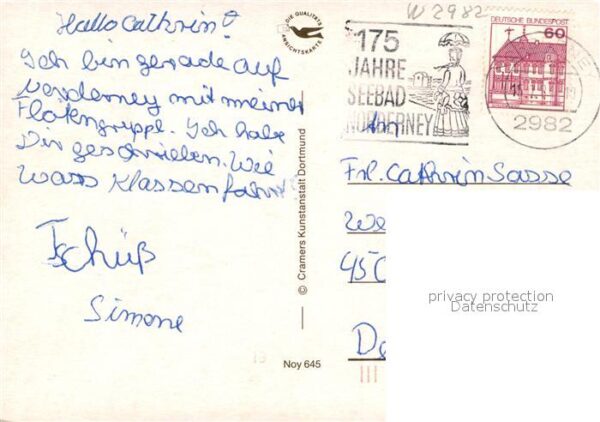 Hallo Cathrin!
Ich bin gerade auf
Norderney mit meiner
Flötengruppe. Ich habe
Dir geschrieben. Wie
wars Klassenfahrt
Tschüß
Simone
DIE QUALITÄTS
ANSICHTSKARTE
© Cramers Kunstanstalt Dortmund
Noy 645
W 2982
175
JAHRE
SEEBAD
NORDERNEY
DEUTSCHE BUNDESPOST
60
2982
An
Frl. Cathrin Sasse
We
450
privacy protection
Datenschutz